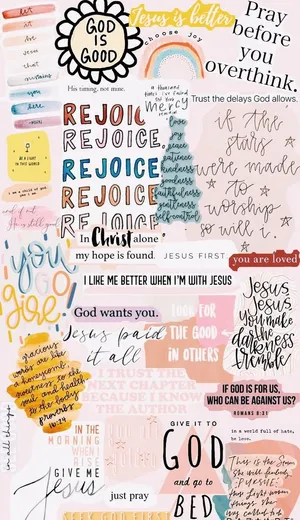 GOD
IS
GOOD
Jesus is better
Pray
before
you
overthink.
choose joy
His timing, not mine.
a thousand
times I've failed
still your
mercy
remains
Trust the delays God allows.
it
is
Jesus
that
sustains
you
here
now
BE A LIGHT
IN THIS WORLD
i am a child of god
yes i am
REJOICE,
REJOICE,
REJOICE,
REJOICE,
REJOICE,
love
joy
peace
patience
kindness
goodness
faithfulness
gentleness
self-control
if the
stars
were made
to
worship
so will i.
and if not,
He is still good.
In Christ alone
my hope is found.
JESUS FIRST
you are loved
you
go
I LIKE ME BETTER WHEN I'M WITH JESUS
God wants you.
Jesus paid
it all
LOOK FOR
THE GOOD
IN OTHERS
Jesus,
Jesus,
You make
the
darkness
tremble
gracious
words are like
a honeycomb,
sweetness to the
soul and health
to the body
proverbs
16:24
I TRUST THE
NEXT CHAPTER
BECAUSE I KNOW
THE AUTHOR
IF GOD IS FOR US,
WHO CAN BE AGAINST US?
ROMANS 8:31
in all things
IN THE
MORNING
WHEN I
RISE
GIVE ME
Jesus
just pray
GIVE IT TO
GOD
and go to
BED
in a world full of hate,
be love.
This is the Son